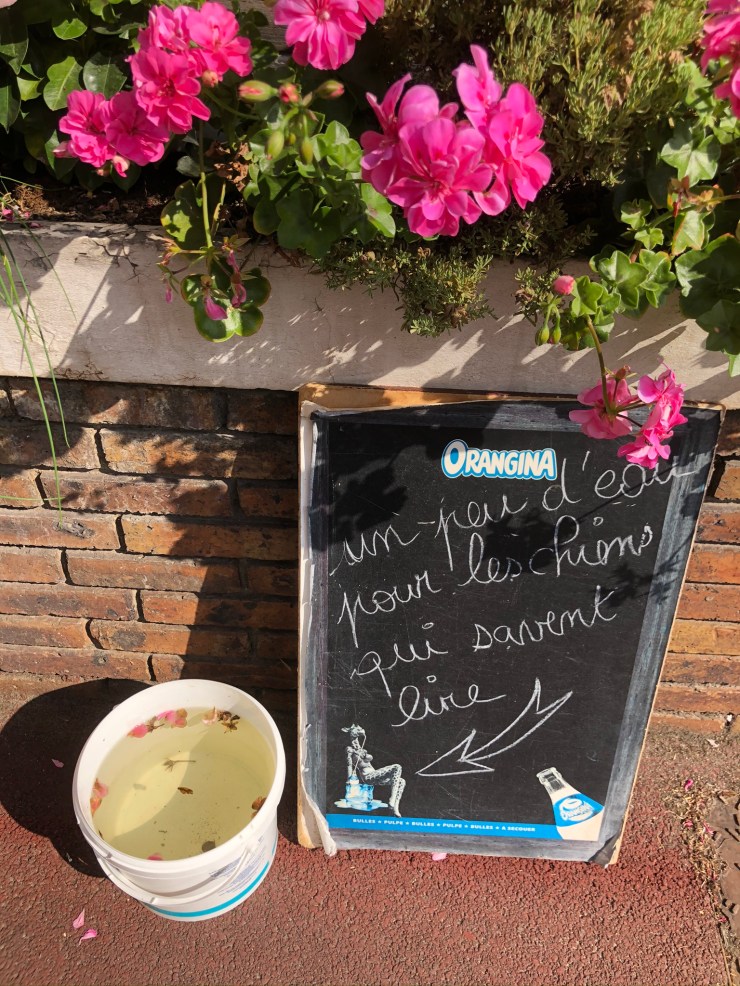 ORANGINA
un peu d'eau
pour les chiens
qui savent
lire
BULLES • PULPE • BULLES • PULPE • BULLES • A SECOUER